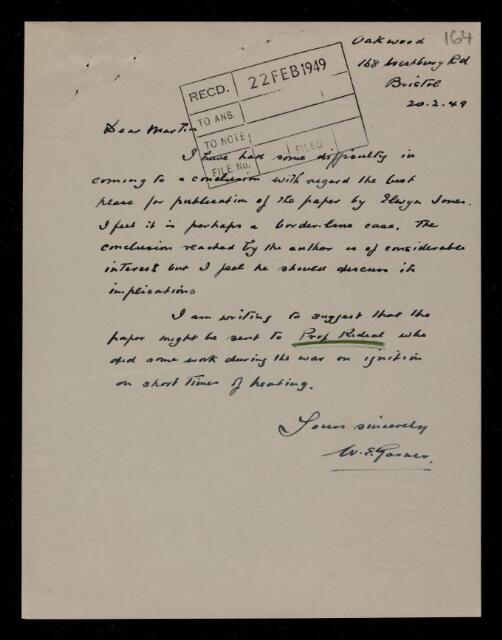 164
Oakwood
168 Westbury Rd
Bristol
20.2.49
RECD. 22 FEB 1949
TO ANS.
TO NOTE
FILE No. FILED
Dear Martin
I have had some difficulty in
coming to a conclusion with regard the best
place for publication of the paper by Elwyn Jones.
I feel it is perhaps a borderline case. The
conclusion reached by the author is of considerable
interest but I feel he should discuss its
implications
I am writing to suggest that the
paper might be sent to Prof Rideal who
did some work during the war on ignition
on short times of heating.
Yours sincerely
W.E. Garner.